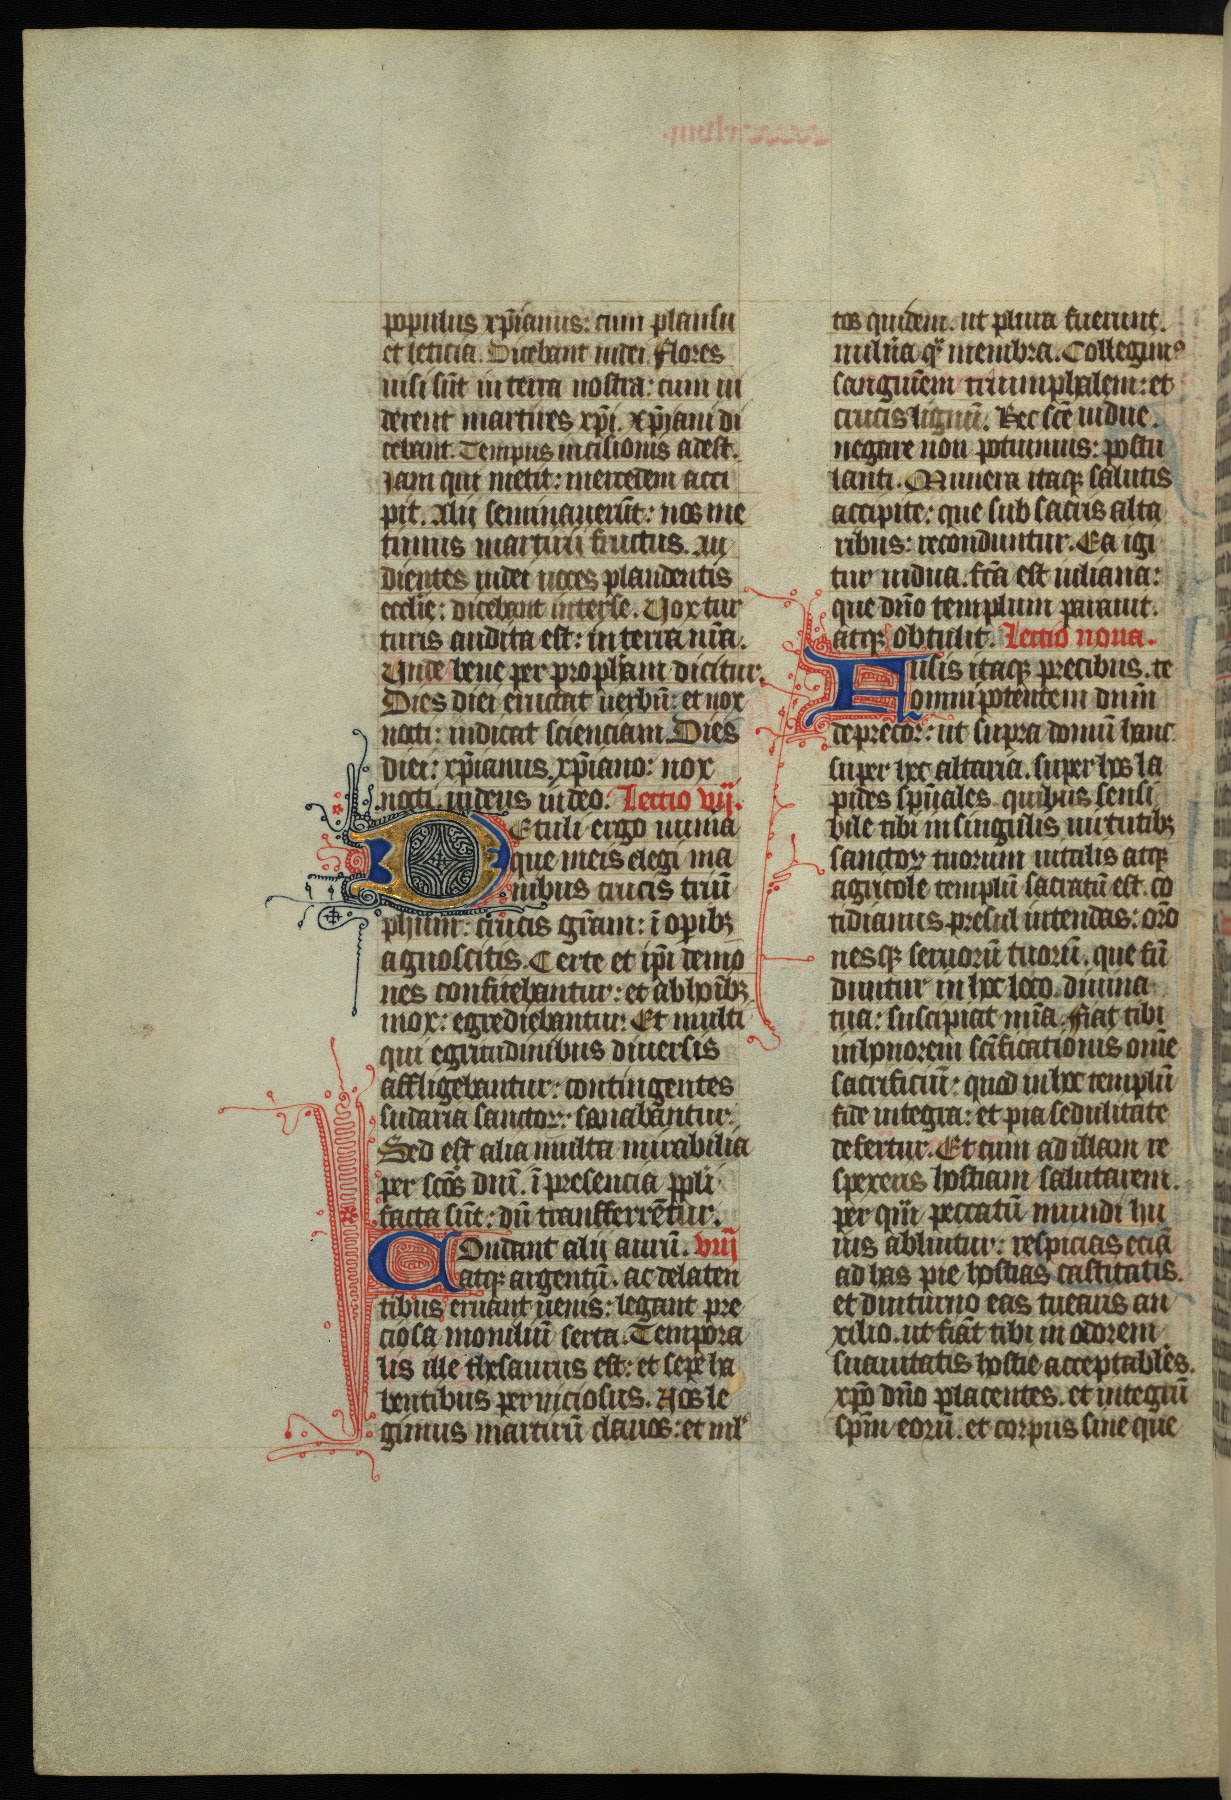 populus xp̄ianus: cum plausu
et leticia. Dicebant iudei. flores
uisi sūt in terra nostra: cum ui
derent martires xp̄i. xp̄iani di
cebant. Tempus incisionis adest.
iam qui metit: mercedem acci
pit. Alij seminauerūt: nos me
timus martirū fructus. Au
dientes iudei uoces plaudentis
ecclīe: dicebant inter se. Uox tur
turis audita est: in terra nr̄a.
Unde bene per prophām dicitur.
Dies diei eructat uerbū: et nox
nocti: indicat scienciam. Dies
diei: xp̄ianus xp̄iano: nox
nocti iudeus iudeo. Lectio vij.
Detuli ergo munia
que meis elegi ma
nibus crucis triū
phum: crucis gr̄am: ī opibꝫ
agnoscitis. Certe et ip̄i demo
nes confitebantur: et ab hoībꝫ
mox: egrediebantur. Et multi
qui egritudinibus diuersis
affligebantur: contingentes
sudaria sanctoꝝ: sanabantur.
Sed est alia multa mirabilia
per scōs dnī. ī presencia ppl̄i
facta sūt: dū transferrētur.
Condant alij aurū. viij
atqꝫ argentū. ac de laten
tibus eruant uenis: legant pre
ciosa monilium serta. Tempora
lis ille thesaurus est: et sepe ha
bentibus perniciosus. Nos le
gimus martirū clauos: et ml̄
tos quidem. ut plura fuerunt.
uulnīa qͣꝫ membra. Collegimꝰ
sanguinem triumphalem: et
crucis lignū. Hec scē uidue.
negare non potuimus: postu
lanti. Munera itaqꝫ salutis
accipite: que sub sacris alta
ribus: reconduntur. Ea igi
tur uidua. fcā est iuliana:
que dn̄o templum parauit.
atqꝫ obtulit. Lectio nona.
Hiis itaqꝫ precibus. te
omnipotentem dnm̄
deprecor: ut supra domū hanc
super hec altaria. super hos la
pides spūales quibus sensi
bile tibi in singulis uirtutibꝫ
sanctoꝝ tuorum uitalis atqꝫ
agricole templū sacratū est. co
tidianus presul intendas: orō
nesqꝫ seruorū tuorū. que fū
duntur in hoc loco. diuina
tua: suscipiat mīa. Fiat tibi
in honorem scīficationis om̄e
sacrificiū: quod in hoc templū
fide integra: et pia sedulitate
defertur. Et cum ad illam re
spexeris hostiam salutarem.
per quā peccatū mundi hu
ius abluitur: respicias eciā
ad has pie hostias castitatis.
et diuturno eas tuearis au
xilio. ut fiāt tibi in odorem
suauitatis hostie acceptabiles.
xp̄o dn̄o placentes. et integrū
spm̄ eorū. et corpus sine que